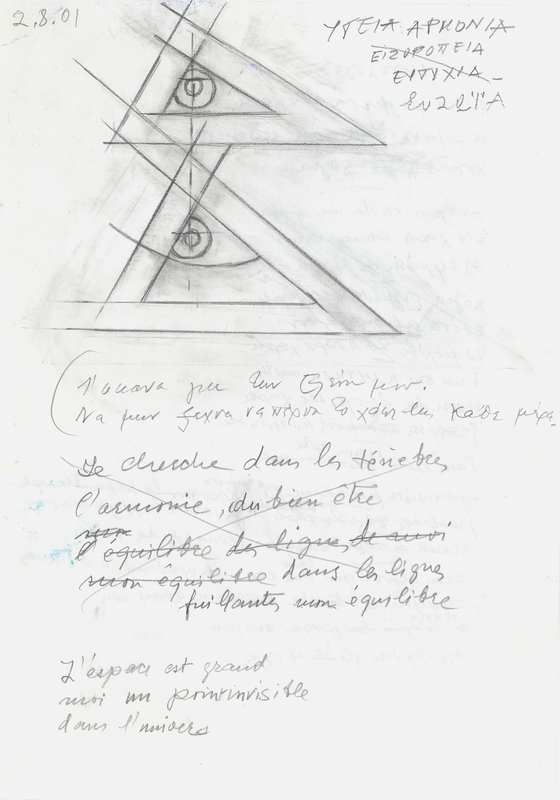 2.8.01
ΥΓΕΙΑ ΑΡΜΟΝΙΑ
ΕΙΣΟΡΟΠΕΙΑ
ΕΥΤΥΧΙΑ
ΕυΖΩΪΑ
Το έκανα για την Ελένη μου.
Να μην ξεχνα να παίρνη το χάπι της κάθε μέρα
Je cherche dans les ténèbres
l'armonie, du bien être
mon
l'équilibre des lignes de moi
mon équilibre dans les lignes
fuillantes mon équilibre
L'éspace est grand
moi un point invisible
dans l'univers